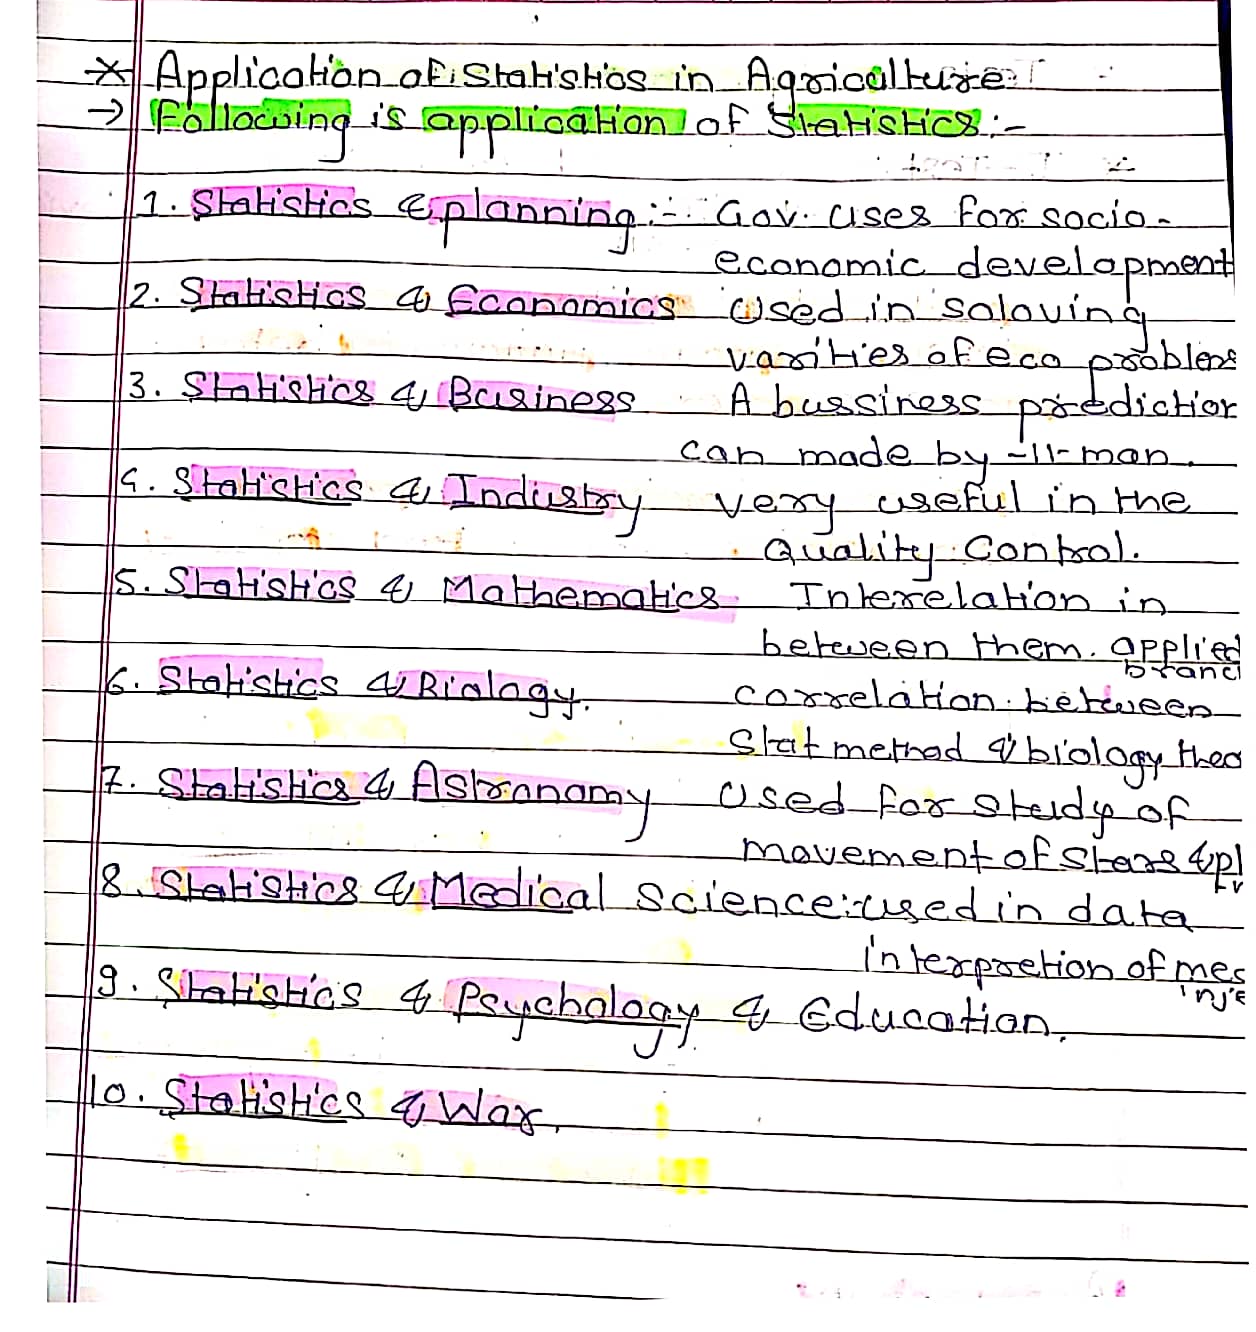 * Application of Statistics in Agriculture
→ Following is application of Statistics :-
1. Statistics & planning :- Gov. uses for socio-
economic development
2. Statistics & Economics used in soloving
varities of eco problems
3. Statistics & Business A bussiness prediction
can made by -11- man.
4. Statistics & Industry very useful in the
Quality Control.
5. Statistics & Mathematics Interelation in
between them. applied
branc
6. Statistics & Biology. correlation between
Stat method & biology theo
7. Statistics & Astronomy used for study of
movement of stars & pl
8. Statistics & Medical Science :- used in data
interpretion of mes
9. Statistics & Psychology & Education.
10. Statistics & War.